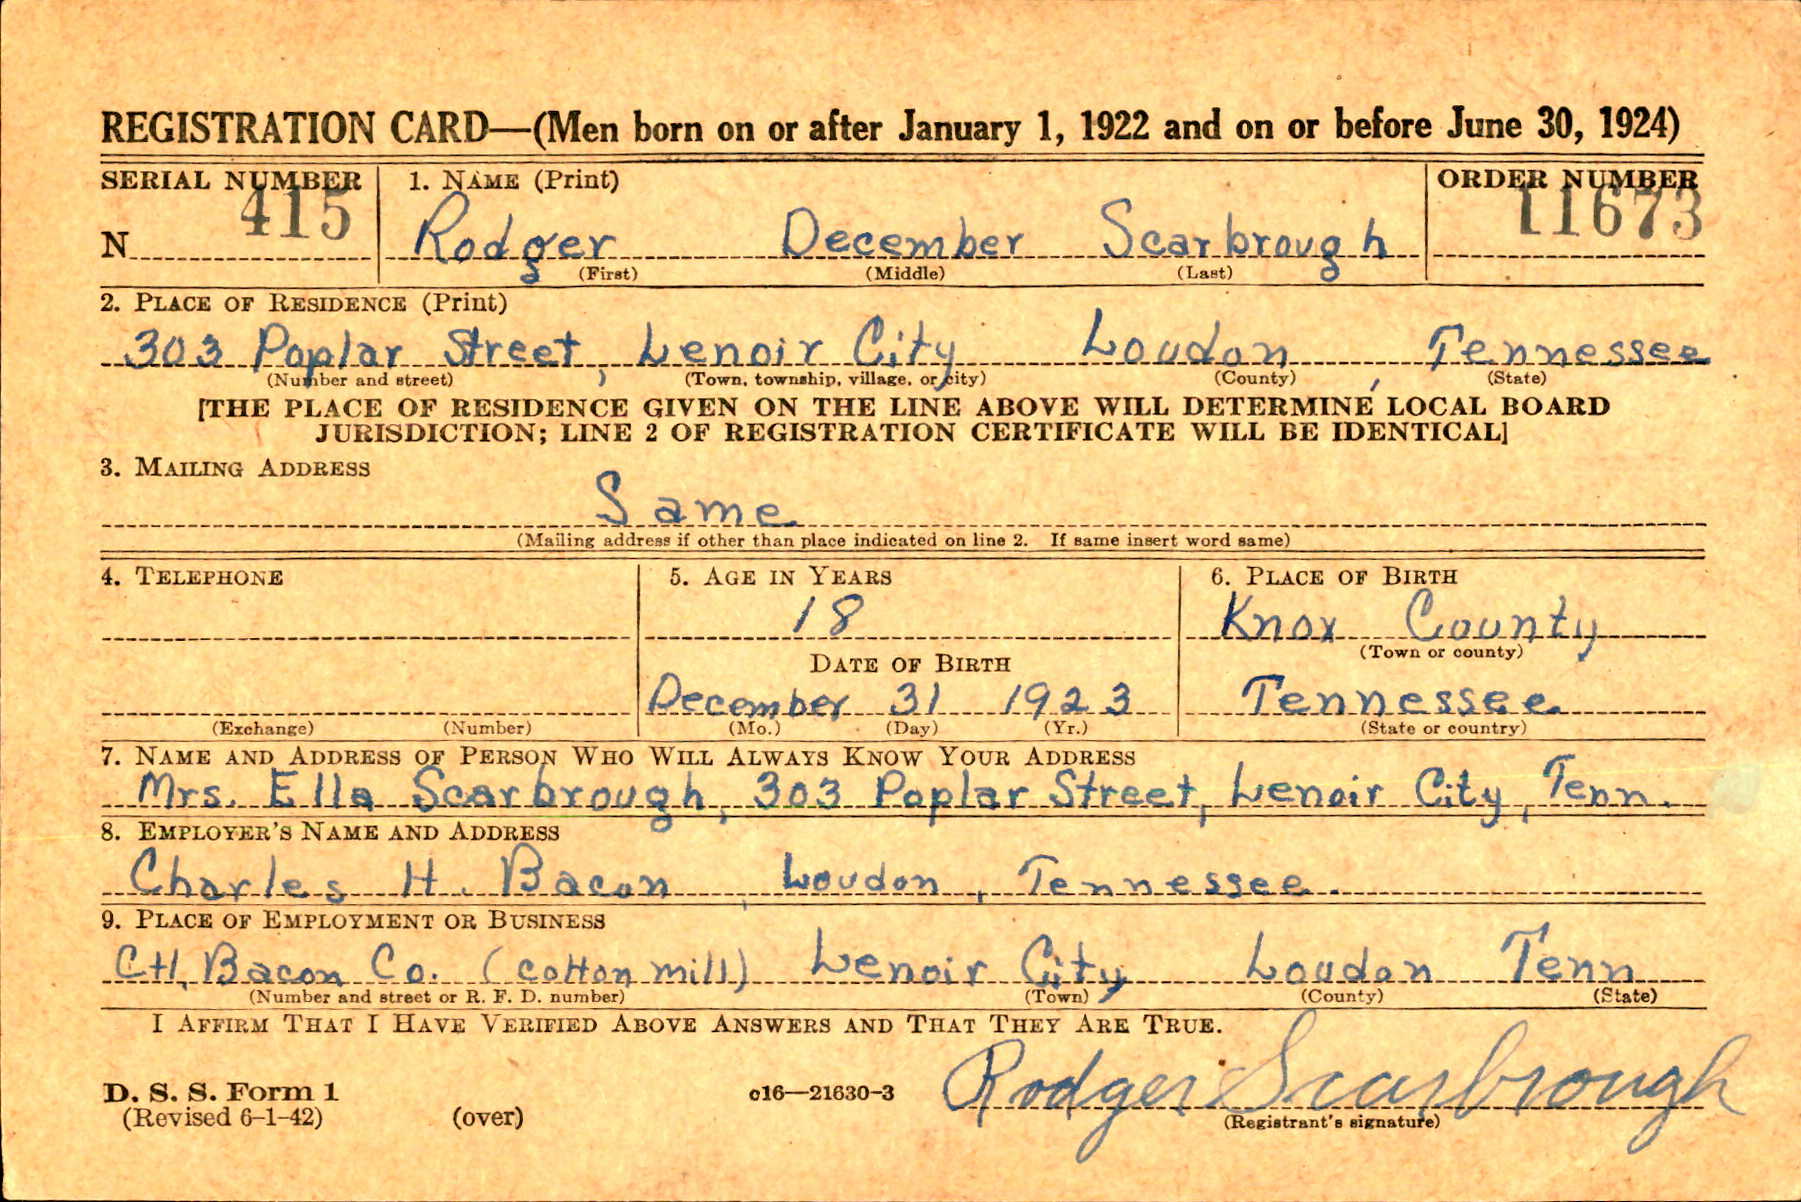 REGISTRATION CARD—(Men born on or after January 1, 1922 and on or before June 30, 1924)
SERIAL NUMBER 1. NAME (Print) ORDER NUMBER
N 415 Rodger December Scarbrough 11673
(First) (Middle) (Last)
2. PLACE OF RESIDENCE (Print)
303 Poplar Street, Lenoir City Loudon, Tennessee
(Number and street) (Town, township, village, or city) (County) (State)
[THE PLACE OF RESIDENCE GIVEN ON THE LINE ABOVE WILL DETERMINE LOCAL BOARD
JURISDICTION; LINE 2 OF REGISTRATION CERTIFICATE WILL BE IDENTICAL]
3. MAILING ADDRESS
Same
(Mailing address if other than place indicated on line 2. If same insert word same)
4. TELEPHONE 5. AGE IN YEARS 6. PLACE OF BIRTH
18 Knox County
(Town or county)
DATE OF BIRTH
December 31 1923 Tennessee
(Exchange) (Number) (Mo.) (Day) (Yr.) (State or country)
7. NAME AND ADDRESS OF PERSON WHO WILL ALWAYS KNOW YOUR ADDRESS
Mrs. Ella Scarbrough, 303 Poplar Street, Lenoir City, Tenn.
8. EMPLOYER'S NAME AND ADDRESS
Charles H. Bacon, Loudon, Tennessee.
9. PLACE OF EMPLOYMENT OR BUSINESS
C.H. Bacon Co. (cotton mill) Lenoir City, Loudon Tenn
(Number and street or R. F. D. number) (Town) (County) (State)
I AFFIRM THAT I HAVE VERIFIED ABOVE ANSWERS AND THAT THEY ARE TRUE.
D. S. S. Form 1 c16—21630-3 Rodger Scarbrough
(Revised 6-1-42) (over) (Registrant's signature)